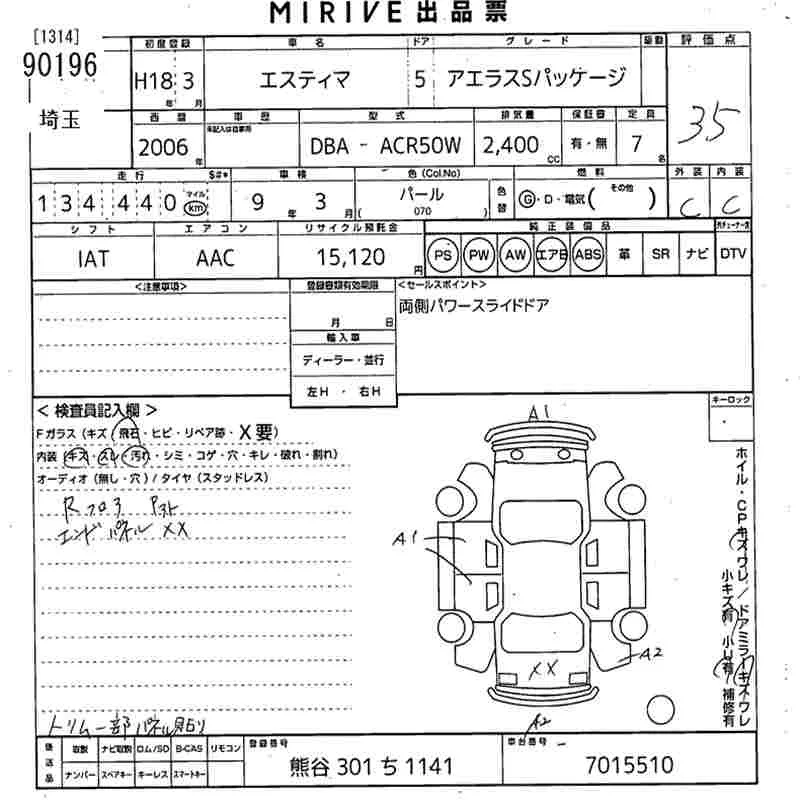 MIRIVE 出品票
[1314]
90196
埼玉
初度登録 車名 ドア グレード 駆動 評価点
H18 3 エスティマ 5 アエラスSパッケージ
年 月
35
西暦 車歴 型式 排気量 保証書 定員
未記入は自家用
2006 年 DBA - ACR50W 2,400 CC 有・無 7 名
走行 $#* 車検 色 (Col.No) 燃料 外装 内装
134,440 マイル km 9 年 3 月 パール (070) 色替 G・D・電気 ( その他 ) C C
シフト エアコン リサイクル預託金 純正装備品
IAT AAC 15,120 円 PS PW AW エアB ABS 革 SR ナビ DTV
<注意事項> 登録書類有効期限 <セールスポイント>
両側パワースライドドア
月 日
輸入車
ディーラー・並行
左H ・ 右H
キーロック
< 検査員記入欄 >
Fガラス (キズ・飛石・ヒビ・リペア跡・X要)
内装 (キズ・スレ・汚れ・シミ・コゲ・穴・キレ・破れ・割れ)
オーディオ (無し・穴) / タイヤ (スタッドレス)
エンドパネル XX
A1
A1
XX
A2
A2
ホイル・CPキズワレ/ドアミラーキズワレ
小キズ有 小U有 補修有
トリム一部パネル貼り
後送品 取説 ナビ取説 ロム/SD B-CAS リモコン
ナンバー スペアキー キーレス スマートキー
登録番号
熊谷 301 ち 1141
車台番号
7015510